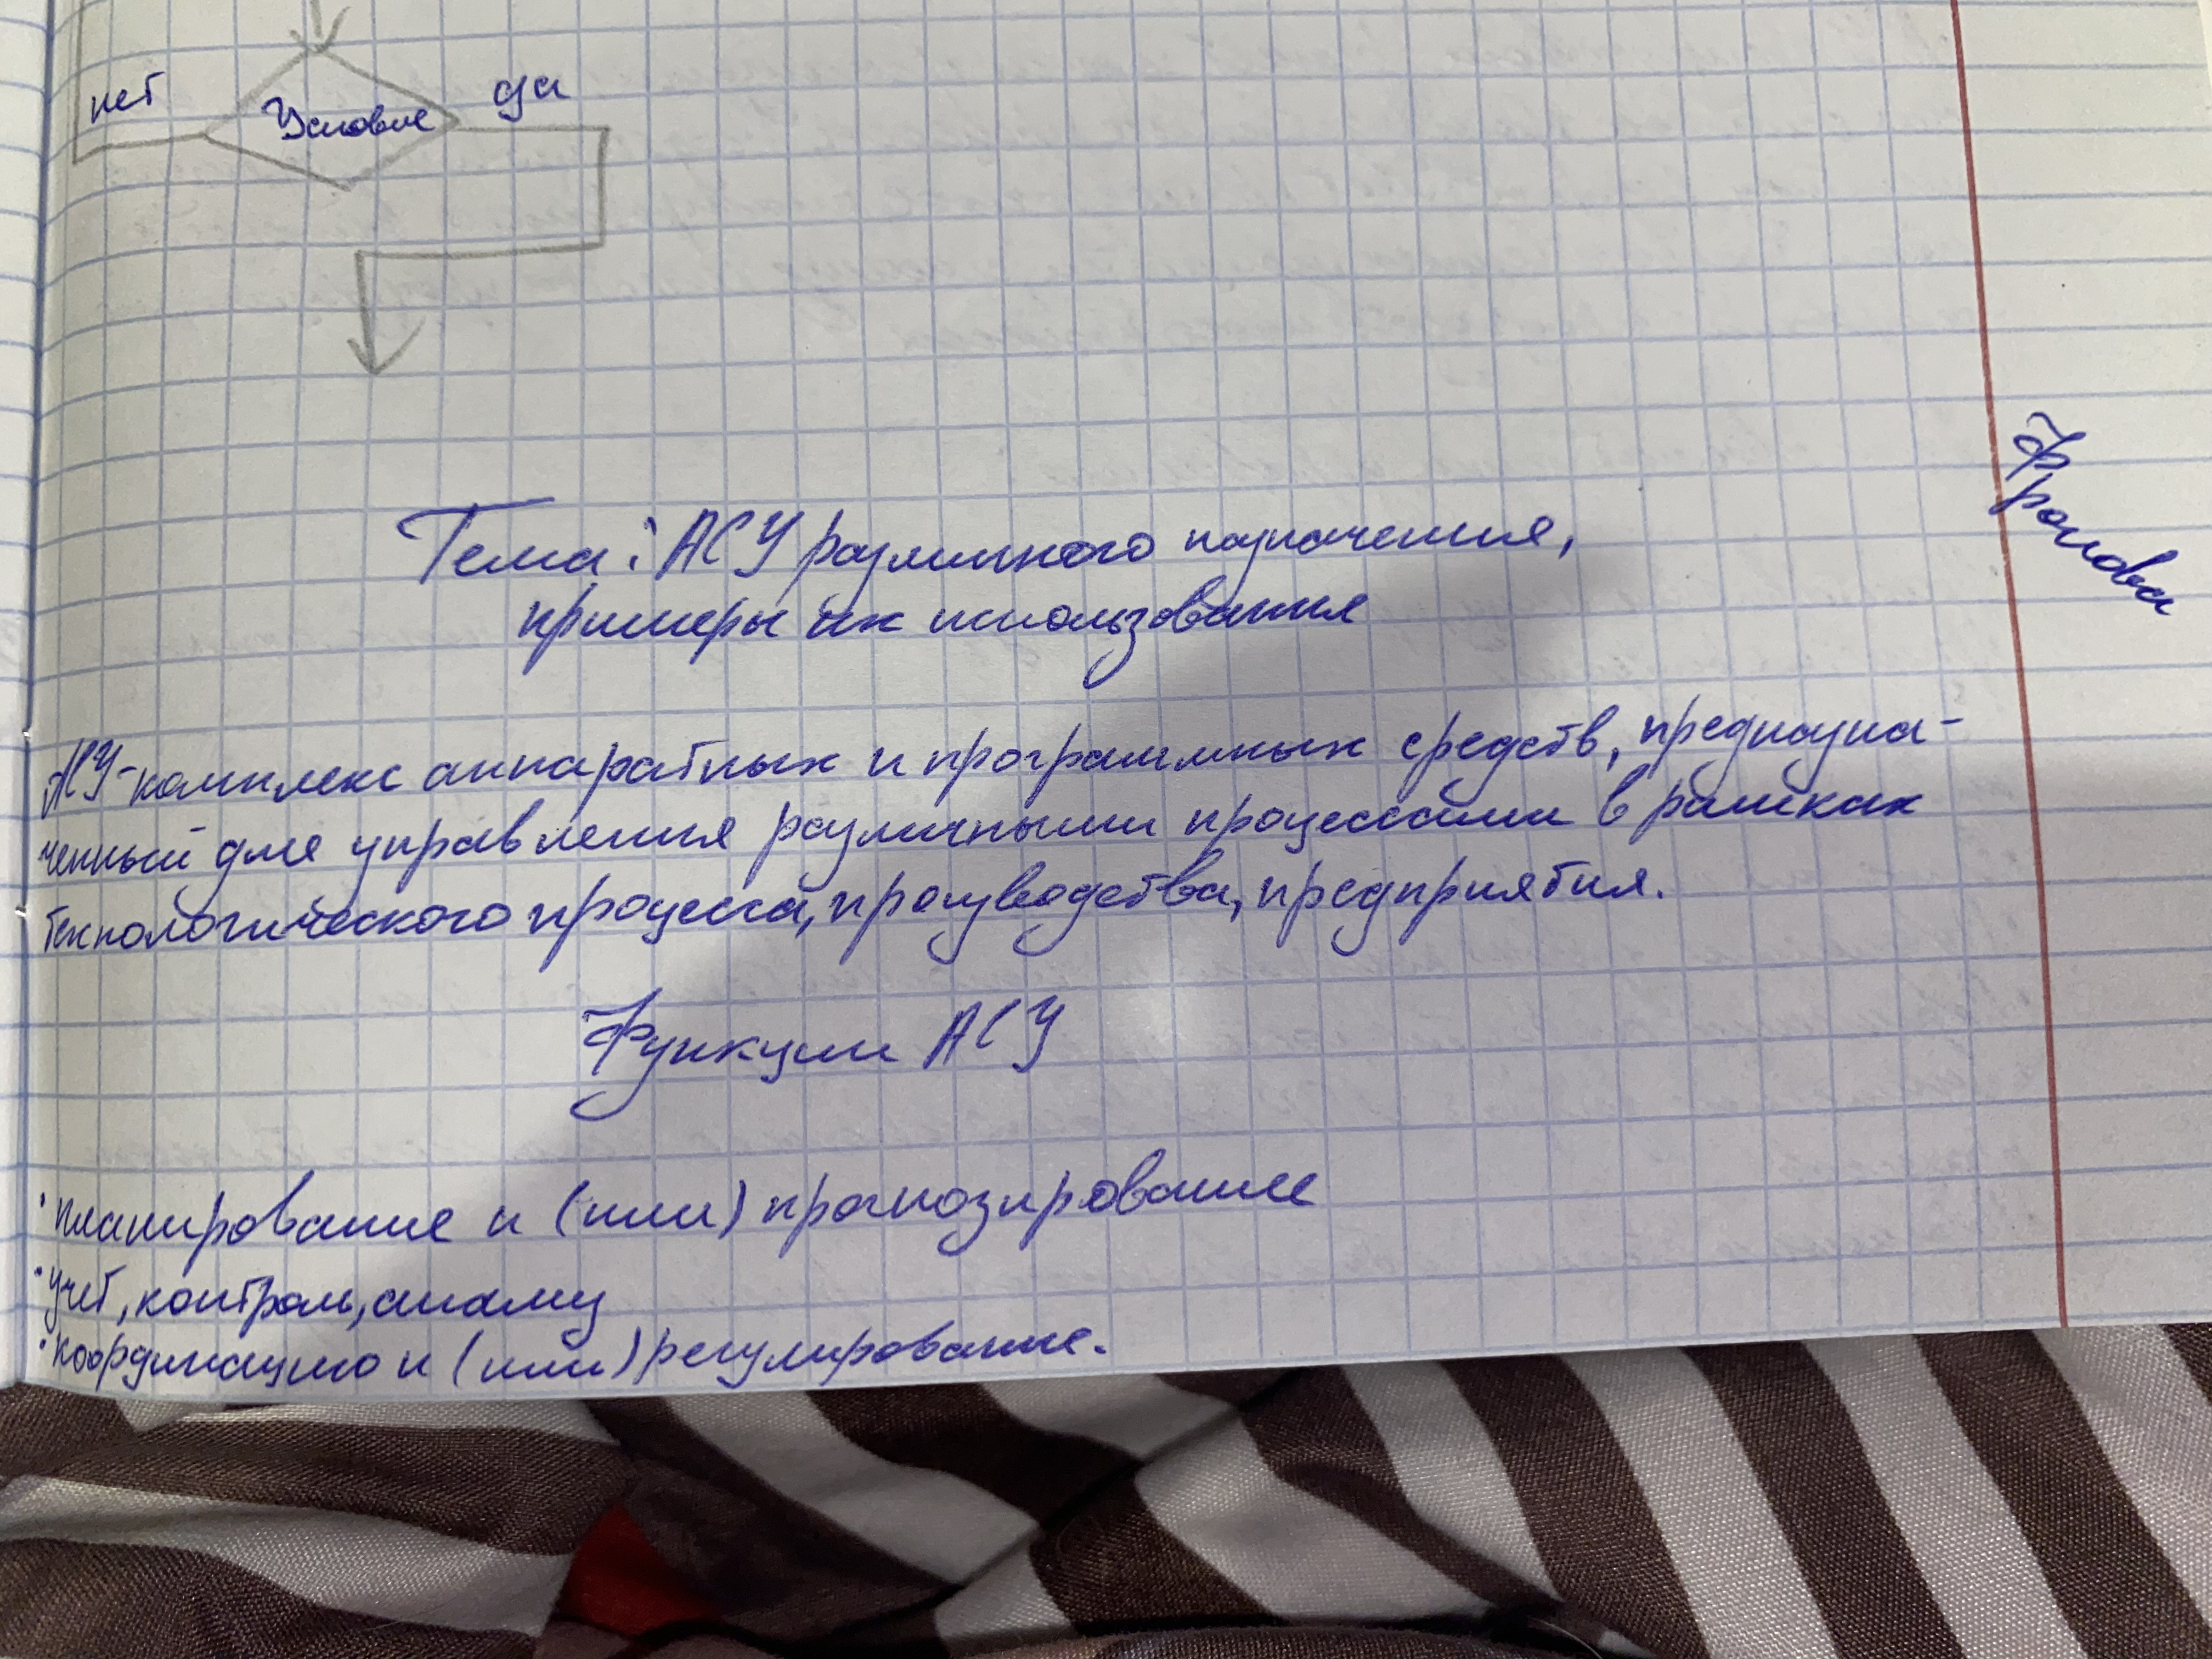 нет
Условие
да
Тема: АСУ различного назначения,
примеры их использования
Фролова
АСУ-комплекс аппаратных и программных средств, предназна-
ченный для управления различными процессами в рамках
технологического процесса, производства, предприятия.
Функции АСУ
·планирование и (или) прогнозирование
·учет, контроль, анализ
·координацию и (или) регулирование.